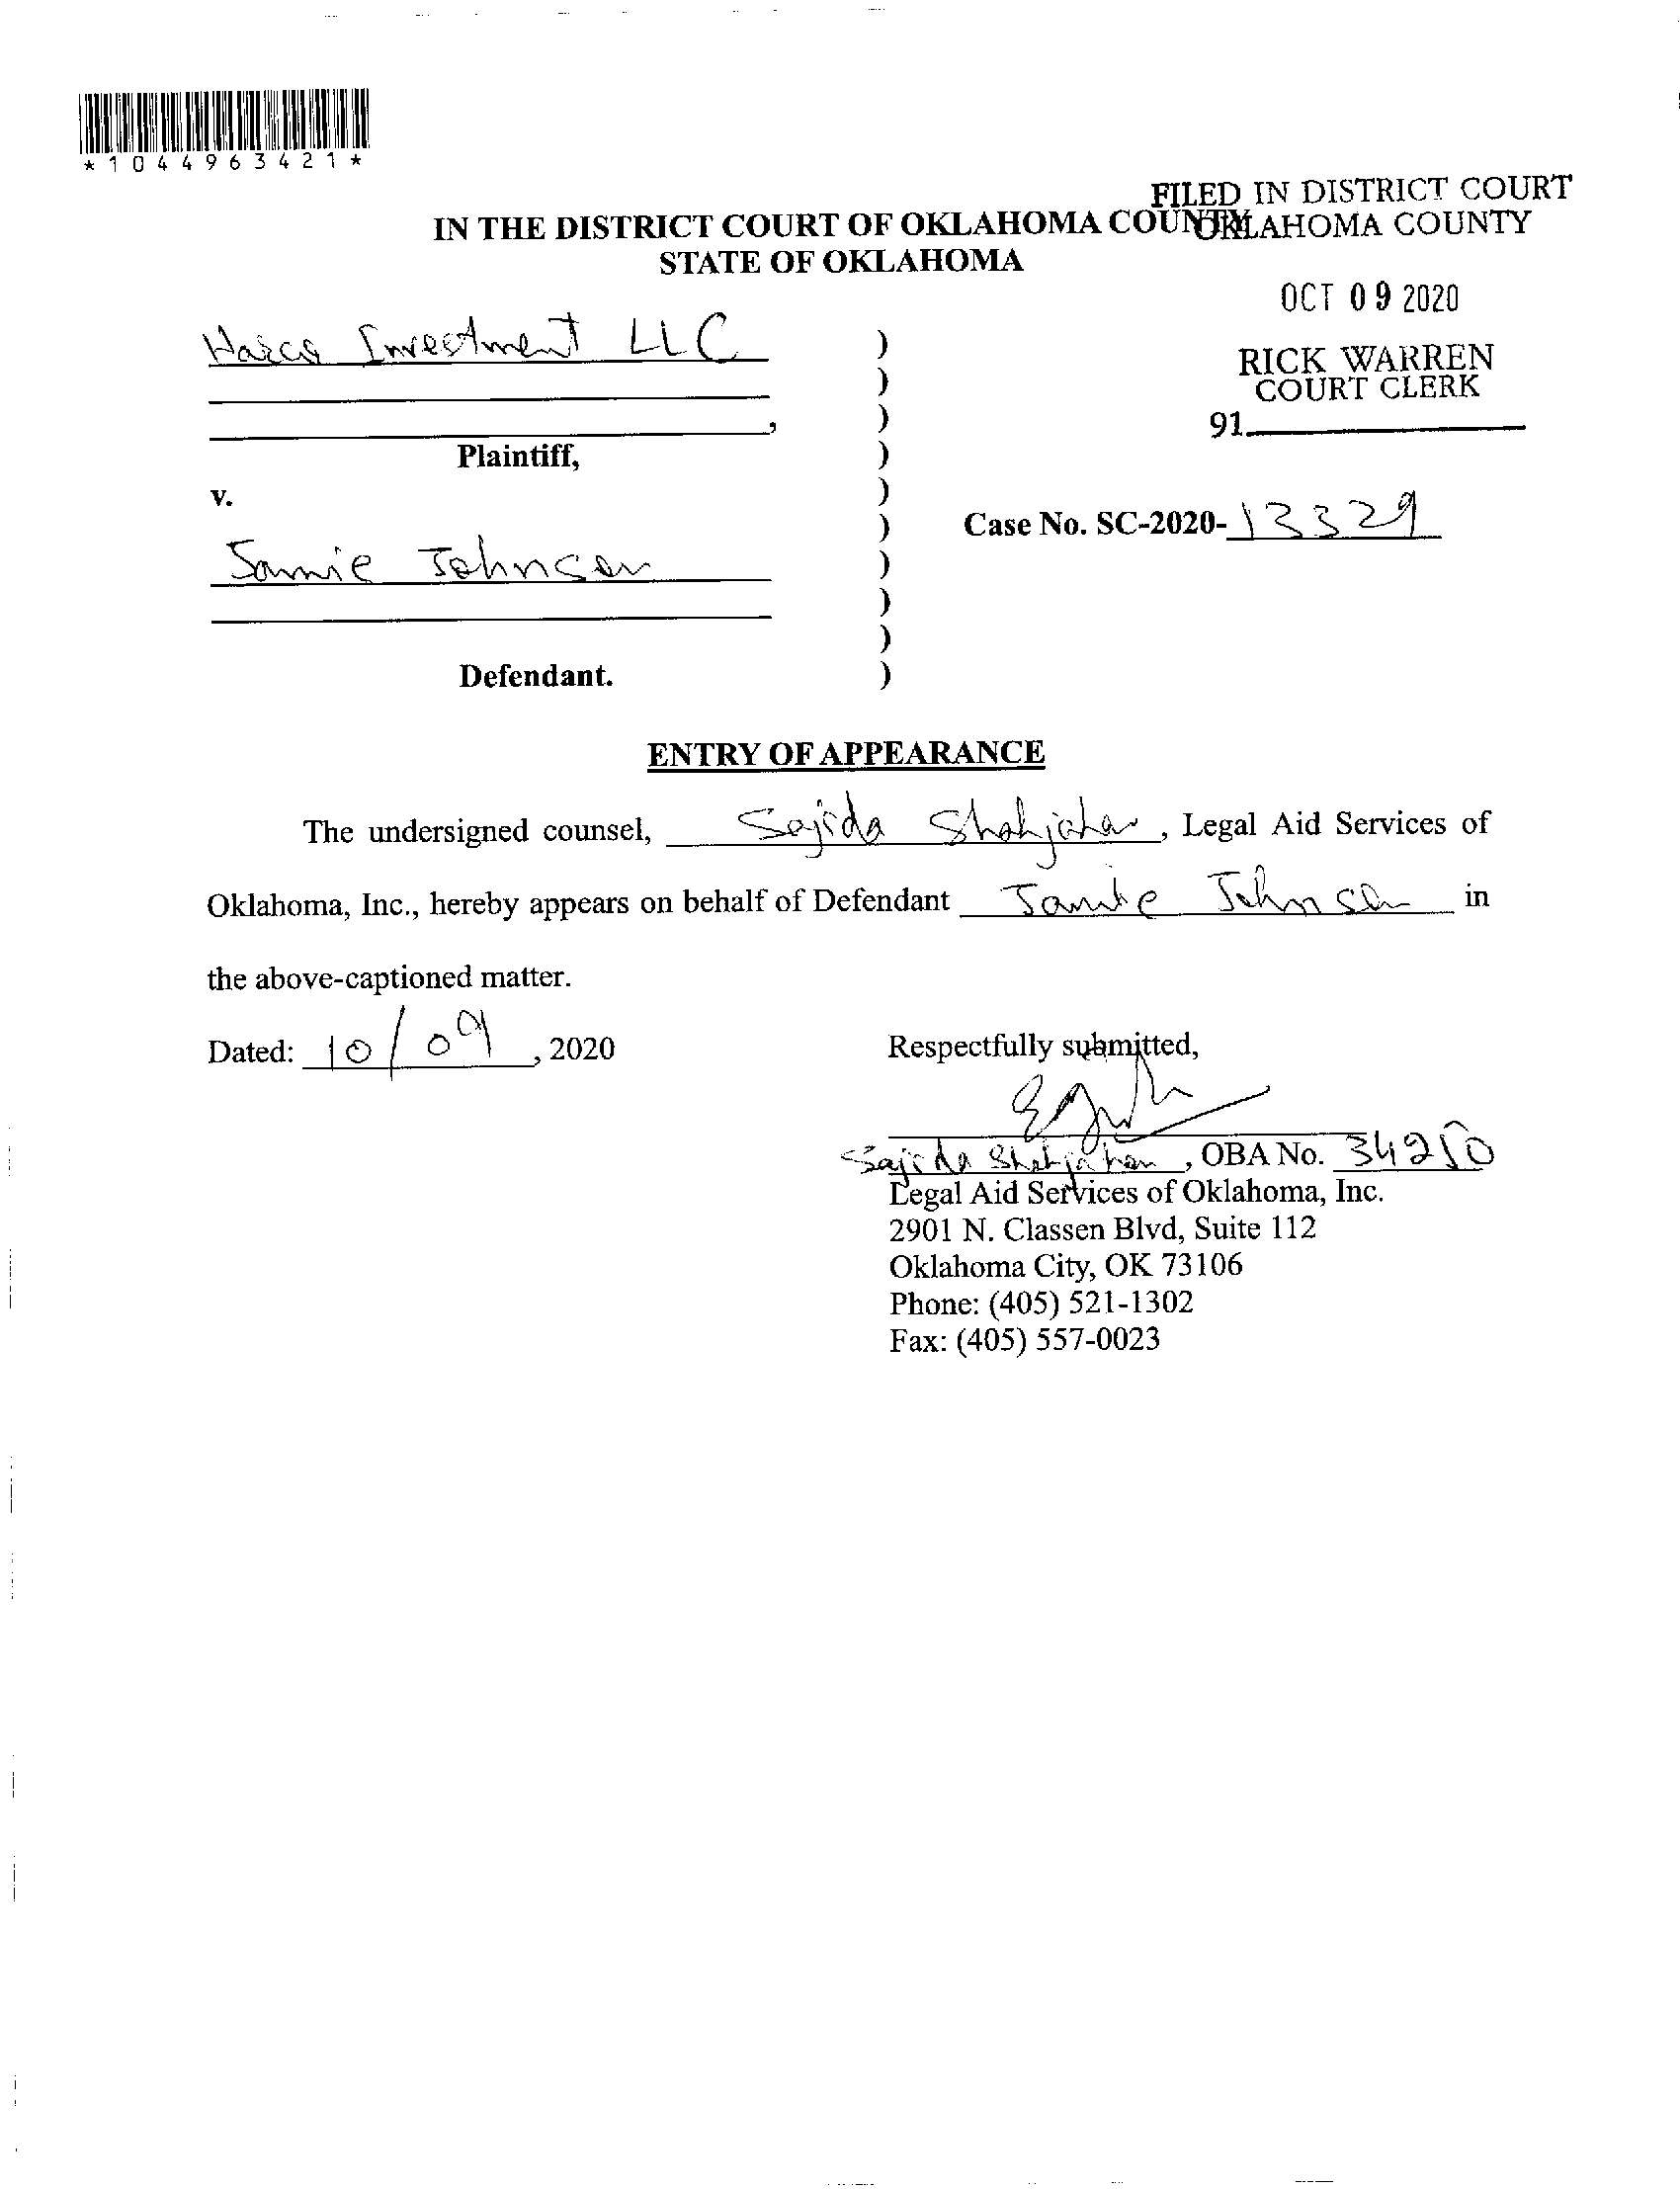 *1044963421*
FILED IN DISTRICT COURT
OKLAHOMA COUNTY
IN THE DISTRICT COURT OF OKLAHOMA COUNTY
STATE OF OKLAHOMA
OCT 09 2020
RICK WARREN
COURT CLERK
91
Investment LLC )
)
, )
Plaintiff, )
v. )
Case No. SC-2020-13329 )
Jamie Johnson )
)
)
Defendant. )
ENTRY OF APPEARANCE
The undersigned counsel, Sajida Shahjahan, Legal Aid Services of
Oklahoma, Inc., hereby appears on behalf of Defendant Jamie Johnson in
the above-captioned matter.
Dated: 10/09, 2020
Respectfully submitted,
Sajida Shahjahan, OBA No.
Legal Aid Services of Oklahoma, Inc.
2901 N. Classen Blvd, Suite 112
Oklahoma City, OK 73106
Phone: (405) 521-1302
Fax: (405) 557-0023